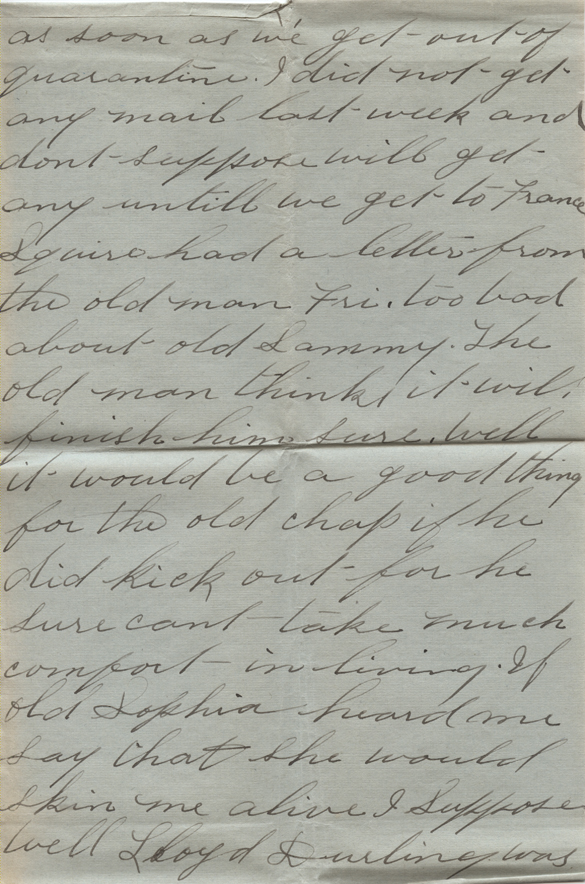 as soon as we get out of
quarantine. I did not get
any mail last week and
dont suppose will get
any untill we get to France
Squire had a letter from
the old man Fri. too bad
about old Sammy. The
old man thinks it will
finish him sure. Well
it would be a good thing
for the old chap if he
did kick out for he
sure cant take much
comfort in living. If
old Sophia heard me
say that she would
skin me alive I suppose
well Lloyd Durling was